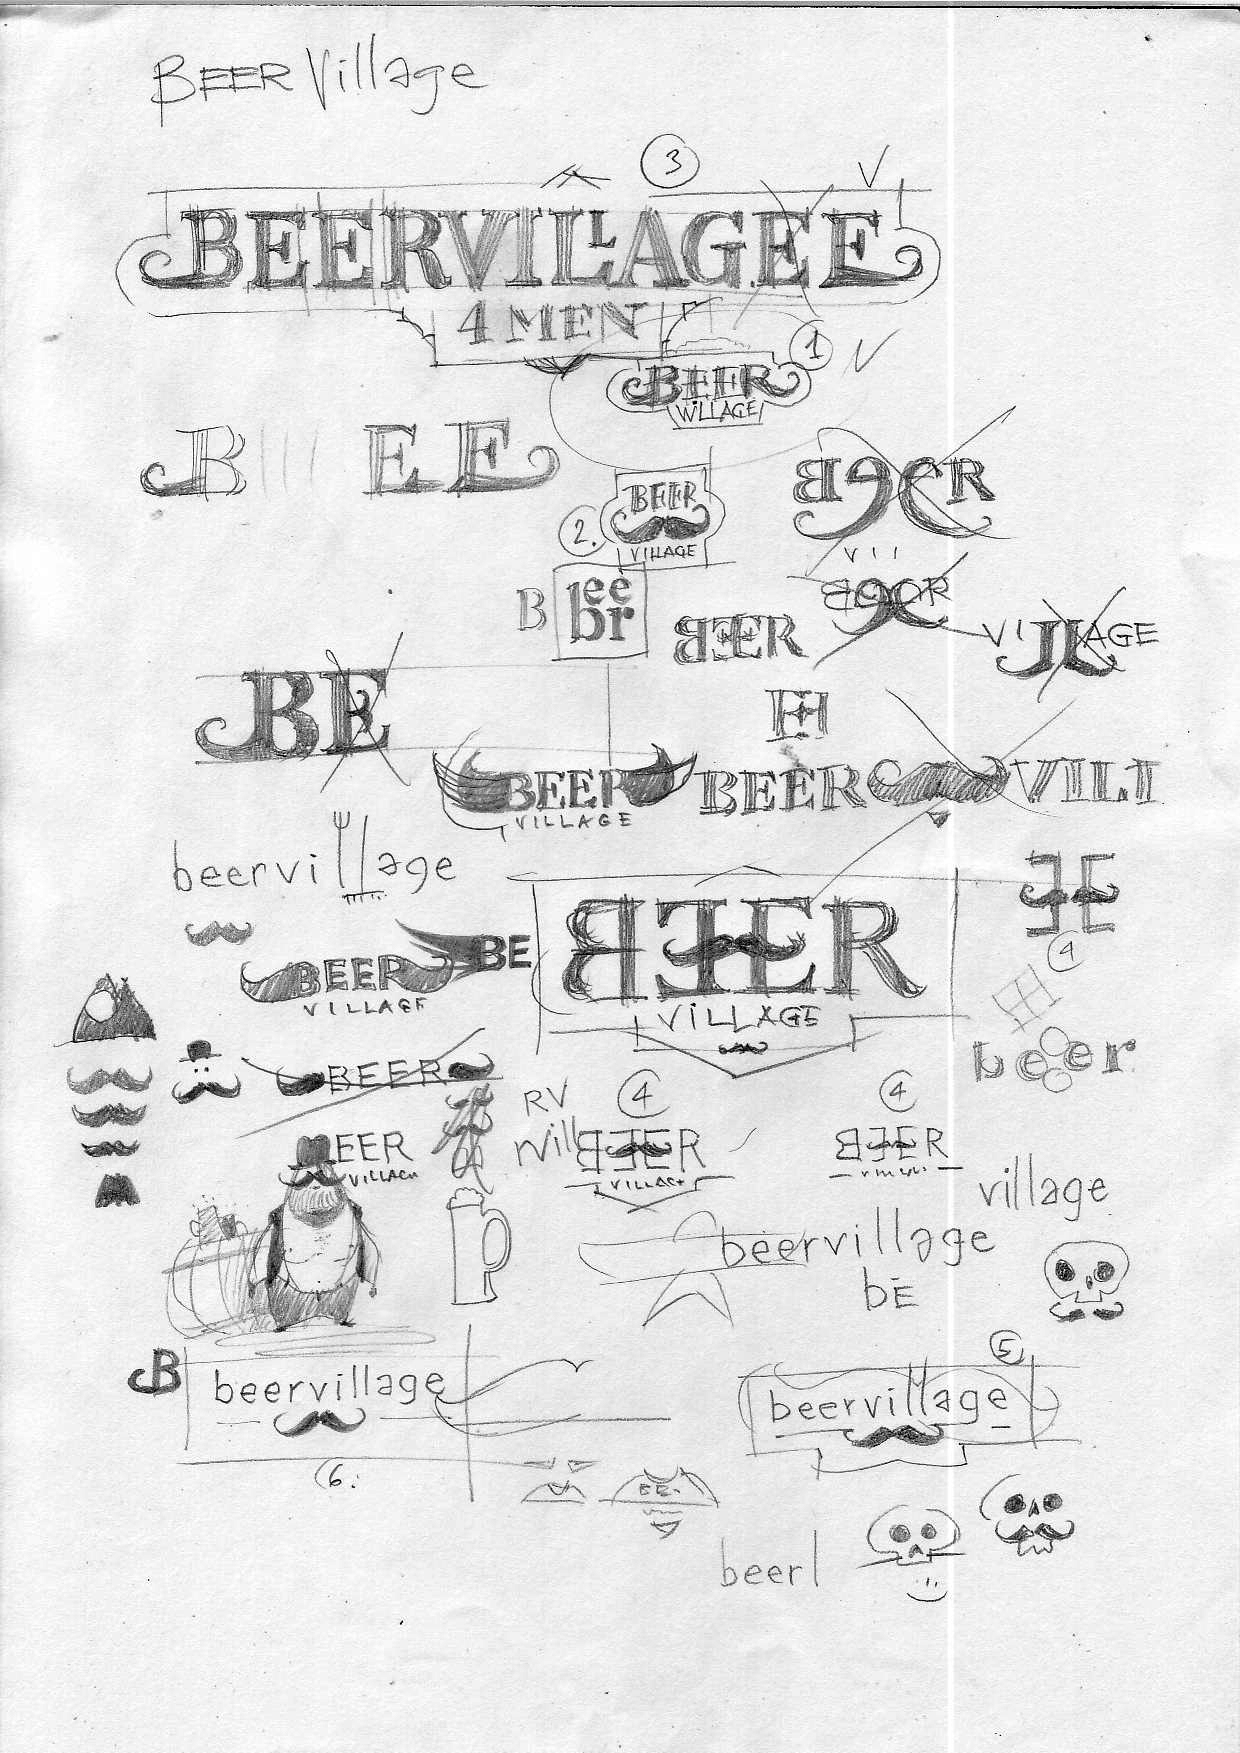 BEER Village
3
V
BEERVILLAGEE
4 MEN
1
V
BEER
WILLAGE
B EE
BEER
VILLAGE
2.
BEER
VII
B
beer
BEER
BEER
VILLAGE
BE
EH
BEER
VILLAGE
BEER VILI
beervillage
BE
BEER
VILLAGE
BEER
VILLAGE
EE
4
beer
BEER
RV
rvill
4
BEER
VILLAGE
4
BEER
EER
VILLAGE
village
beervillage
bE
B
beervillage
6.
5
beervillage
EE.
beerl